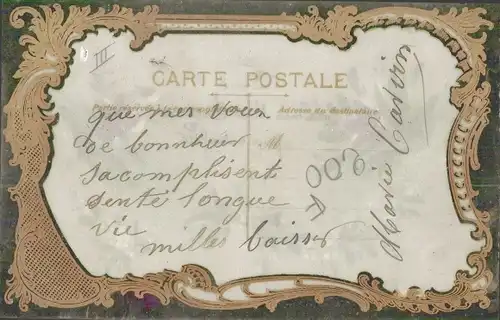 III
CARTE POSTALE
Partie réservée à la correspondance
Adresse du destinataire
que mes voeux
de bonheur
sacomplisent
senté longue
vie
milles baiser
Marie
K 003